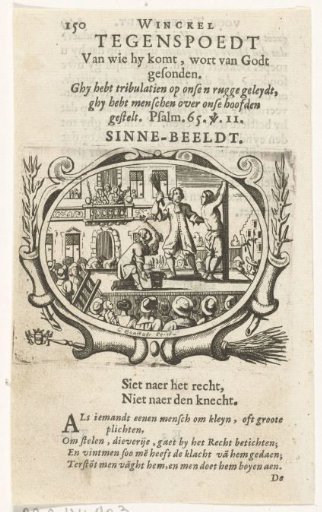 150 WINCKEL
TEGENSPOEDT
Van wie hy komt, wort van Godt
gesonden.
Ghy hebt tribulatien op onsen rugge geleydt,
ghy hebt menschen over onse hoofden
gestelt. Psalm. 65. ℣. 11.
SINNE-BEELDT.
Siet naer het recht,
Niet naer den knecht.
ALs iemandt eenen mensch om kleyn, oft groote
plichten,
Om stelen, dieverije, gaet by het Recht betichten;
En vintmen soo mē heeft de klacht vā hem gedaen;
Terstōt men vāght hem, en men doet hem boyen aen.
De